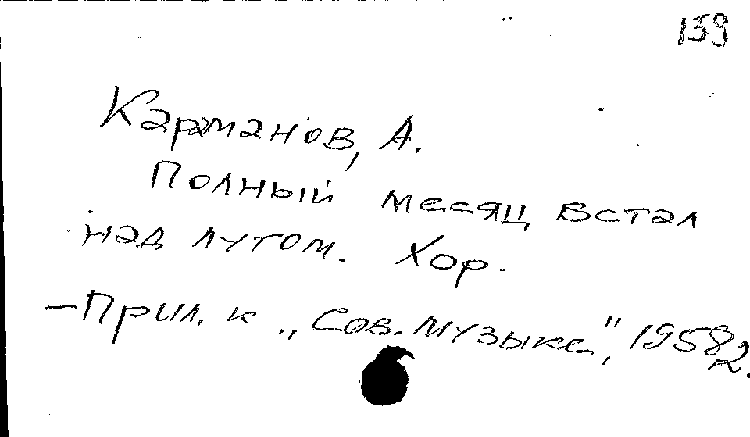 159
Карманов, А.
Полный месяц встал
над лугом. Хор.
— Прил. к „Сов. музыке", 1958, 2.